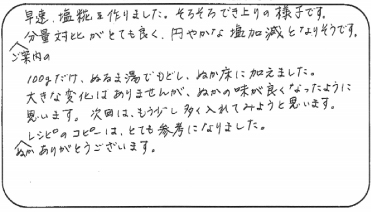 早速、塩糀を作りました。そろそろでき上りの様子です。
分量対比がとても良く、円やかな塩加減となりそうです。
ご案内の
100gだけ、ぬるま湯でもどし、ぬか床に加えました。
大きな変化はありませんが、ぬかの味が良くなったように
思います。次回は、もう少し多く入れてみようと思います。
レシピのコピーは、とても参考になりました。
ぬか ありがとうございます。